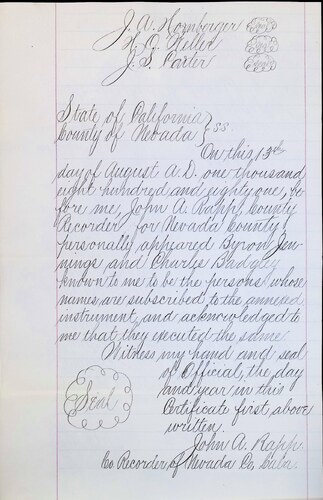 J. A. Hornberger Seal
H. Q. Heller Seal
J. S. Porter Seal
State of California
County of Nevada } ss
On this 13th
day of August A.D. one thousand
eight hundred and eighty one, be
fore me, John A. Rapp, County
Recorder for Nevada County
personally appeared Byron Jen
nings and Charles Badgley
known to me to be the persons whose
names are subscribed to the annexed
instrument, and acknowledged to
me that they executed the same
Witness my hand and seal
of Official, the day
Seal and year in this
Certificate first above
written.
John A. Rapp
Co Recorder of Nevada Co, Cala.